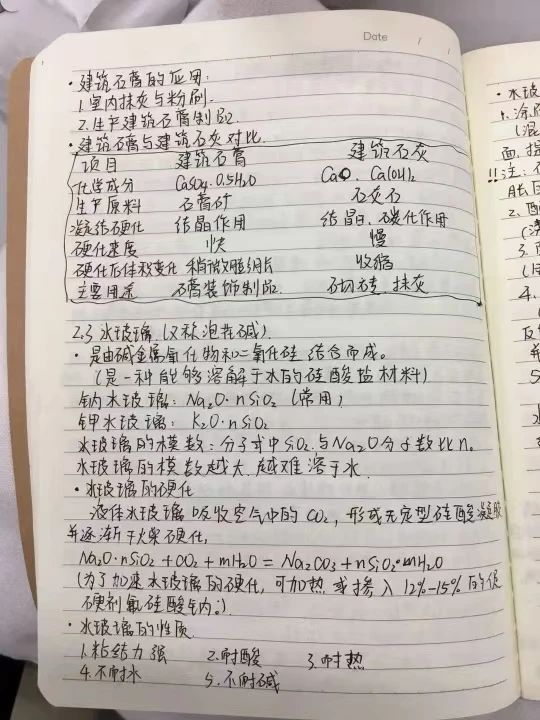 Date / /
·建筑石膏的应用:
1.室内抹灰与粉刷.
2.生产建筑石膏制品.
·建筑石膏与建筑石灰对比.
项目 建筑石膏 建筑石灰
化学成分 CaSO4·0.5H2O CaO、Ca(OH)2
生产原料 石膏矿 石灰石
凝结硬化 结晶作用 结晶、碳化作用
硬化速度 快 慢
硬化后体积变化 稍微膨胀 收缩
主要用途 石膏装饰制品 砌砖、抹灰
2.3 水玻璃 (又称泡花碱).
·是由碱金属氧化物和二氧化硅结合而成。
(是一种能够溶解于水的硅酸盐材料)
钠水玻璃: Na2O·nSiO2 (常用)
钾水玻璃: K2O·nSiO2
水玻璃的模数:分子式中SiO2与Na2O分子数比n。
水玻璃的模数越大,越难溶于水.
·水玻璃的硬化
液体水玻璃吸收空气中的CO2, 形成无定型硅酸凝胶
并逐渐干燥硬化,
Na2O·nSiO2+CO2+mH2O=Na2CO3+nSiO2·mH2O
(为了加速水玻璃的硬化,可加热或掺入12%-15%的促
硬剂氟硅酸钠。)
·水玻璃的性质
1.粘结力强 2.耐酸 3.耐热
4.不耐水 5.不耐碱
·水玻
1.涂
(混
面,提
!!注:
2.
3.
4.
5